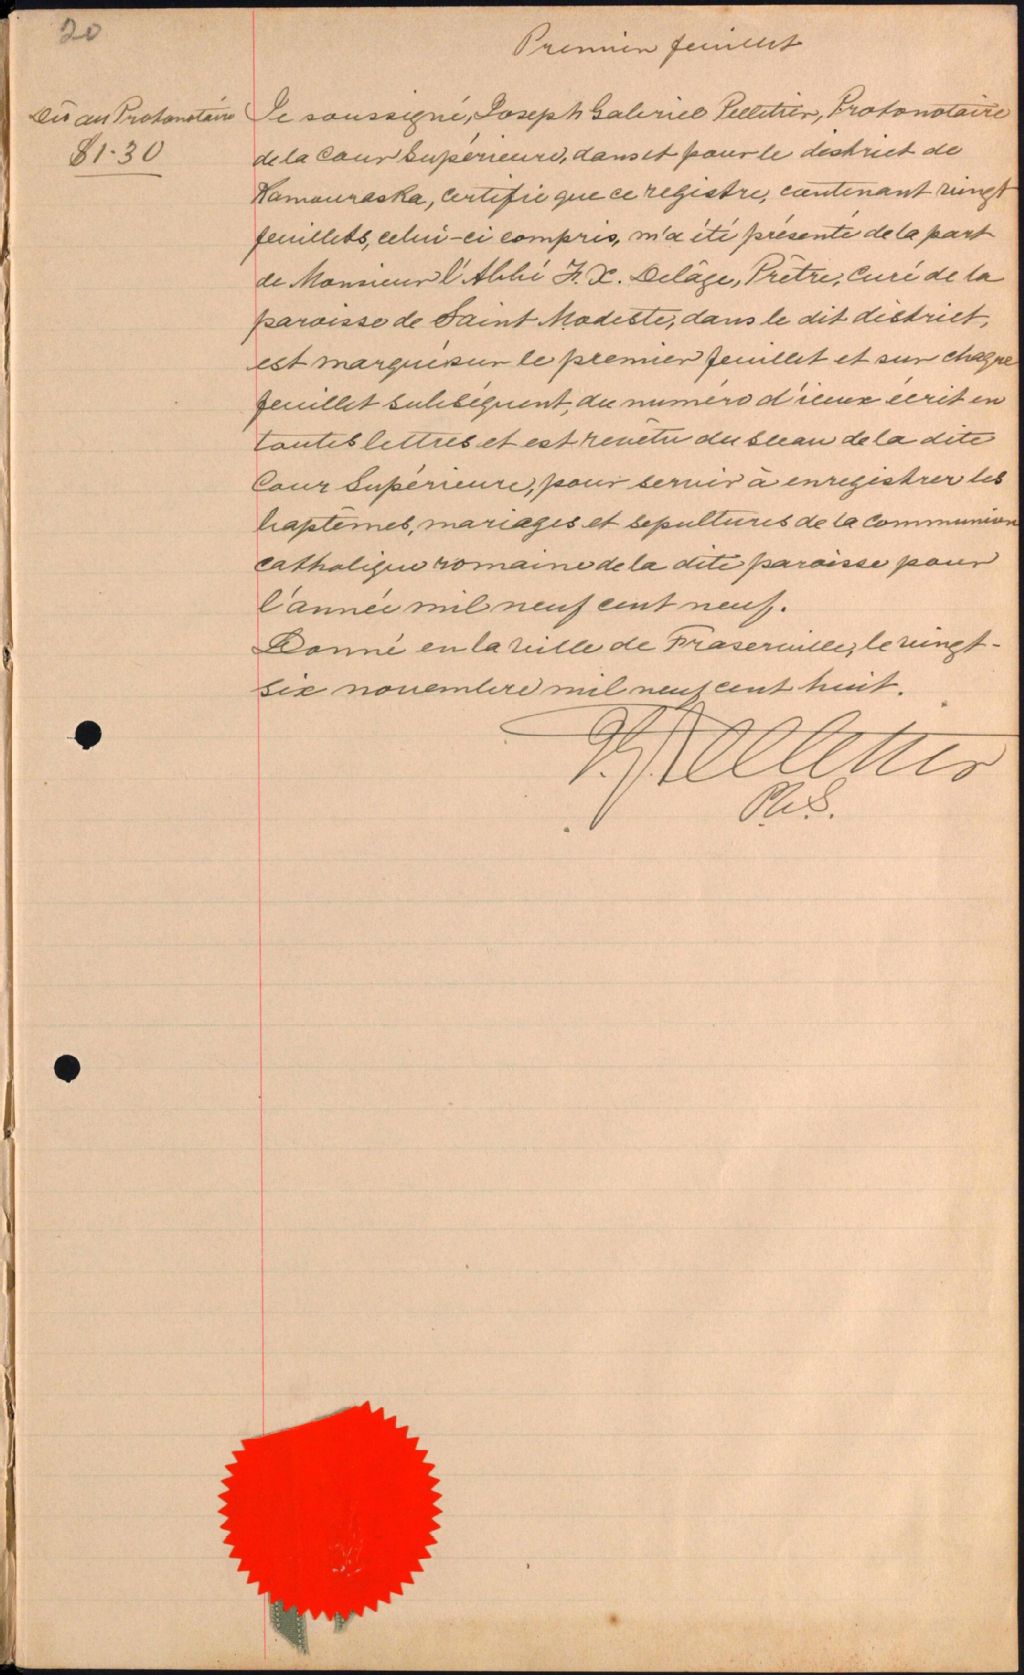 20
Premier feuillet
Dû au Protonotaire
$1.30
Je soussigné, Joseph Gabriel Pelletier, Protonotaire
de la Cour Supérieure, dans et pour le district de
Kamouraska, certifie que ce registre, contenant vingt
feuillets, celui-ci compris, m'a été présenté de la part
de Monsieur l'Abbé F. X. Delâge, Prêtre, Curé de la
paroisse de Saint Modeste, dans le dit district,
est marqué sur le premier feuillet et sur chaque
feuillet subséquent, du numéro d'iceux écrit en
toutes lettres et est revêtu du sceau de la dite
Cour Supérieure, pour servir à enregistrer les
baptêmes, mariages et sépultures de la Communion
catholique romaine de la dite paroisse pour
l'année mil neuf cent neuf.
Donné en la ville de Fraserville, le vingt-
six novembre mil neuf cent huit.
J. G. Pelletier
P.C.S.